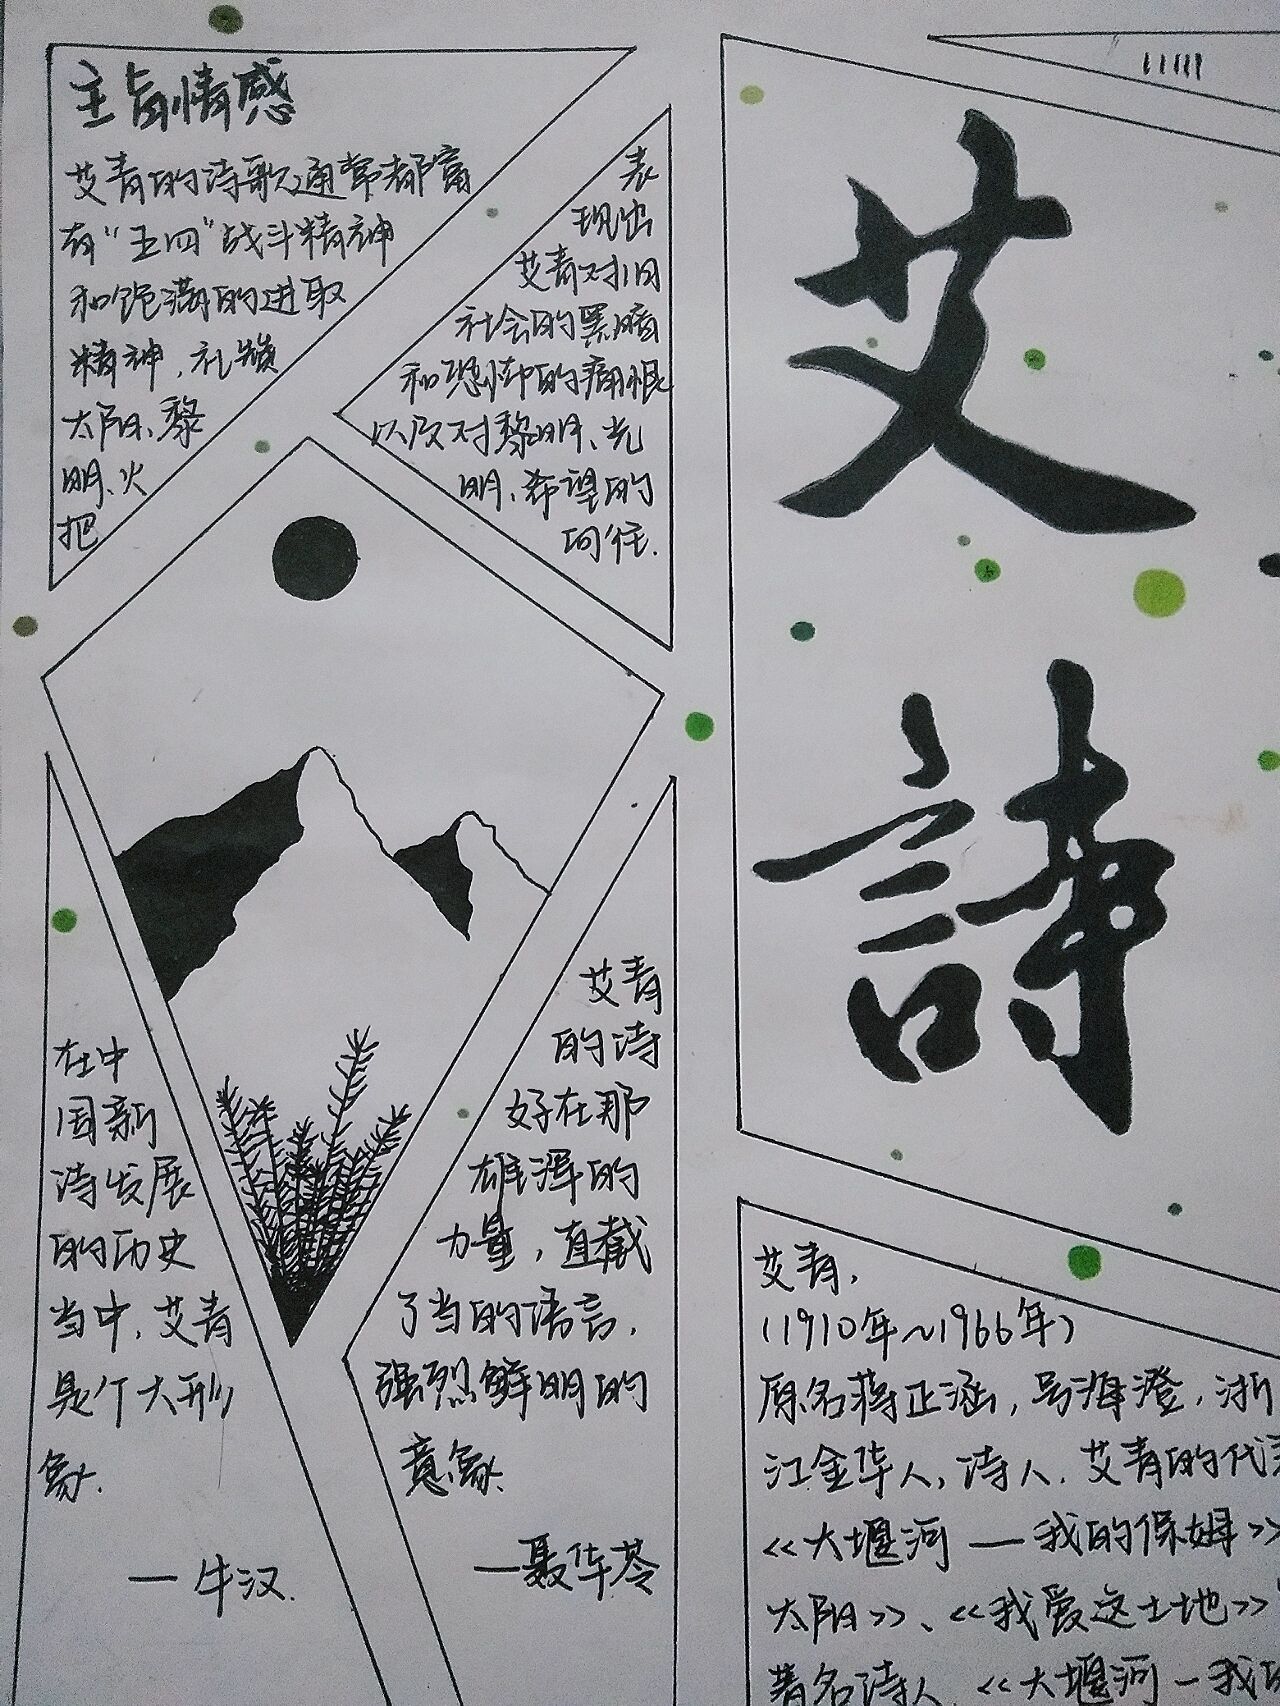 主旨情感
艾青的诗歌通常都富
有“五四”战斗精神
和饱满的进取
精神，礼赞
太阳、黎
明、火
把
表
现出
艾青对旧
社会的黑暗
和恐怖的痛恨
以及对黎明、光
明、希望的
向往.
艾
詩
在中
国新
诗发展
的历史
当中，艾青
是个大形
象.
—牛汉.
艾青
的诗
好在那
雄浑的
力量，直截
了当的语言，
强烈鲜明的
意象.
—聂华苓
艾青，
(1910年~1966年)
原名蒋正涵，号海澄，浙
江金华人，诗人. 艾青的代
《大堰河—我的保姆》
太阳》、《我爱这土地》
著名诗人《大堰河—我的